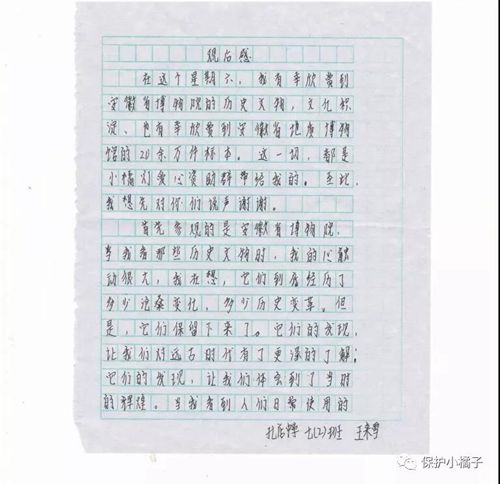 观后感
在这个星期六,我有幸欣赏到
安徽省博物院的历史文物,文化积
淀、也有幸欣赏到安徽省地质博物
馆的20余万件标本。这一切,都是
小橘灯爱心资助群带给我的。在此,
我想先对你们说声谢谢。
首先参观的是安徽省博物院,
当我看那些历史文物时,我的心触
动很大,我在想,它们到底经历了
多少沧桑变化,多少历史变革。但
是,它们保留下来了。它们的发现,
让我们对远古时代有了更深的了解;
它们的发现,让我们体会到了当时
的辉煌。当我看到人们日常使用的
七(2)班 王
保护小橘子